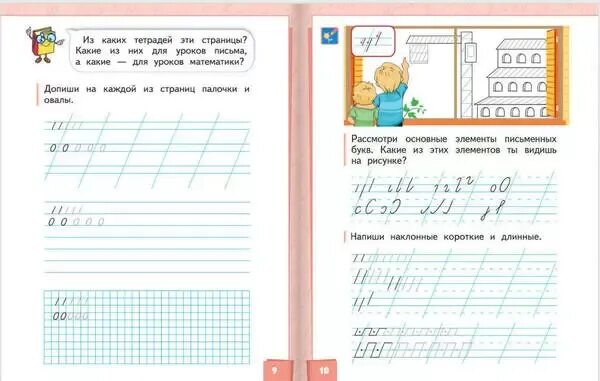 Из каких тетрадей эти страницы?
Какие из них для уроков письма,
а какие — для уроков математики?
Допиши на каждой из страниц палочки и
овалы.
9
Рассмотри основные элементы письменных
букв. Какие из этих элементов ты видишь
на рисунке?
Напиши наклонные короткие и длинные.
10